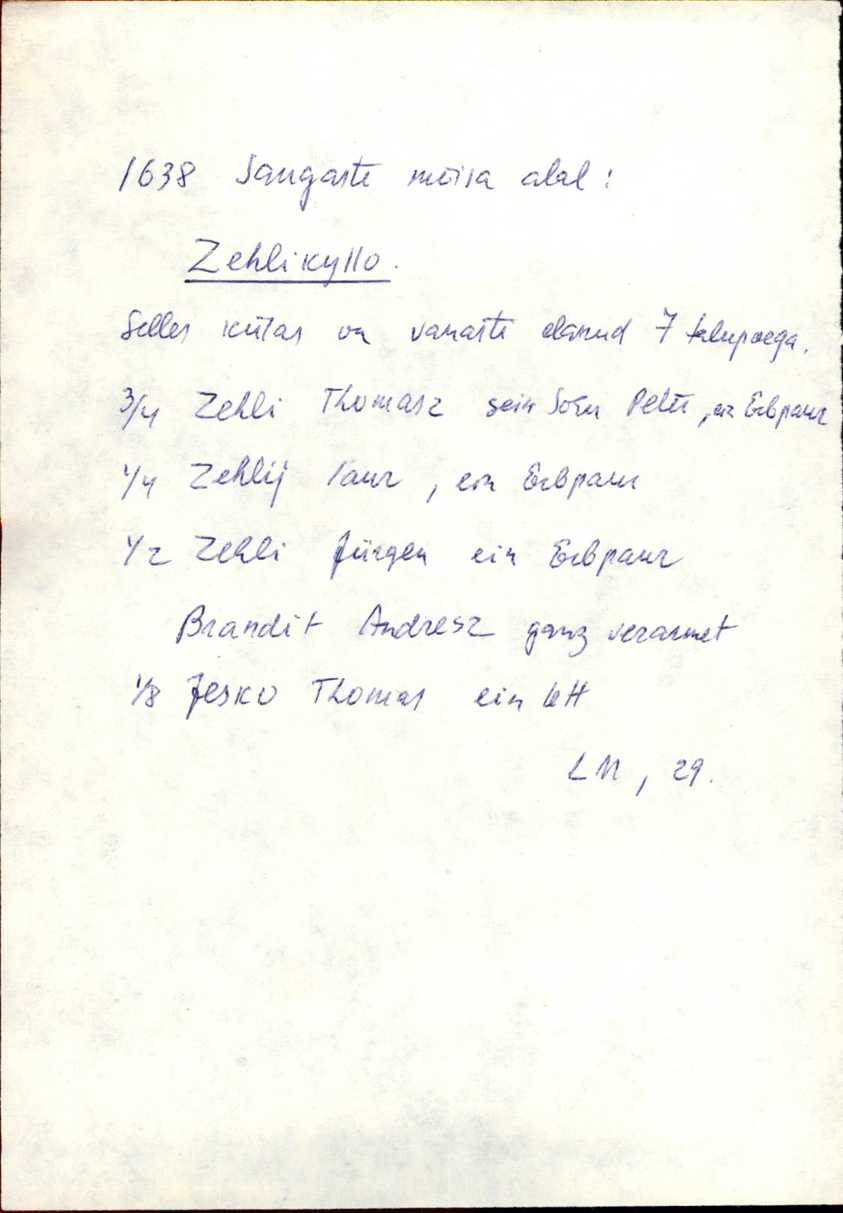 1638 Sangaste mõisa alal:
Zehlikyllo.
Selles külas on vanasti elanud 7 talupoega.
3/4 Zehli Thomasz sein Sohn Peter, ein Erbpaur
1/4 Zehlij Laur, ein Erbpaur
1/2 Zehli Jürgen ein Erbpaur
Brandit Andresz ganz verarmet
1/8 Jesko Thomas ein Lett
LM, 29.